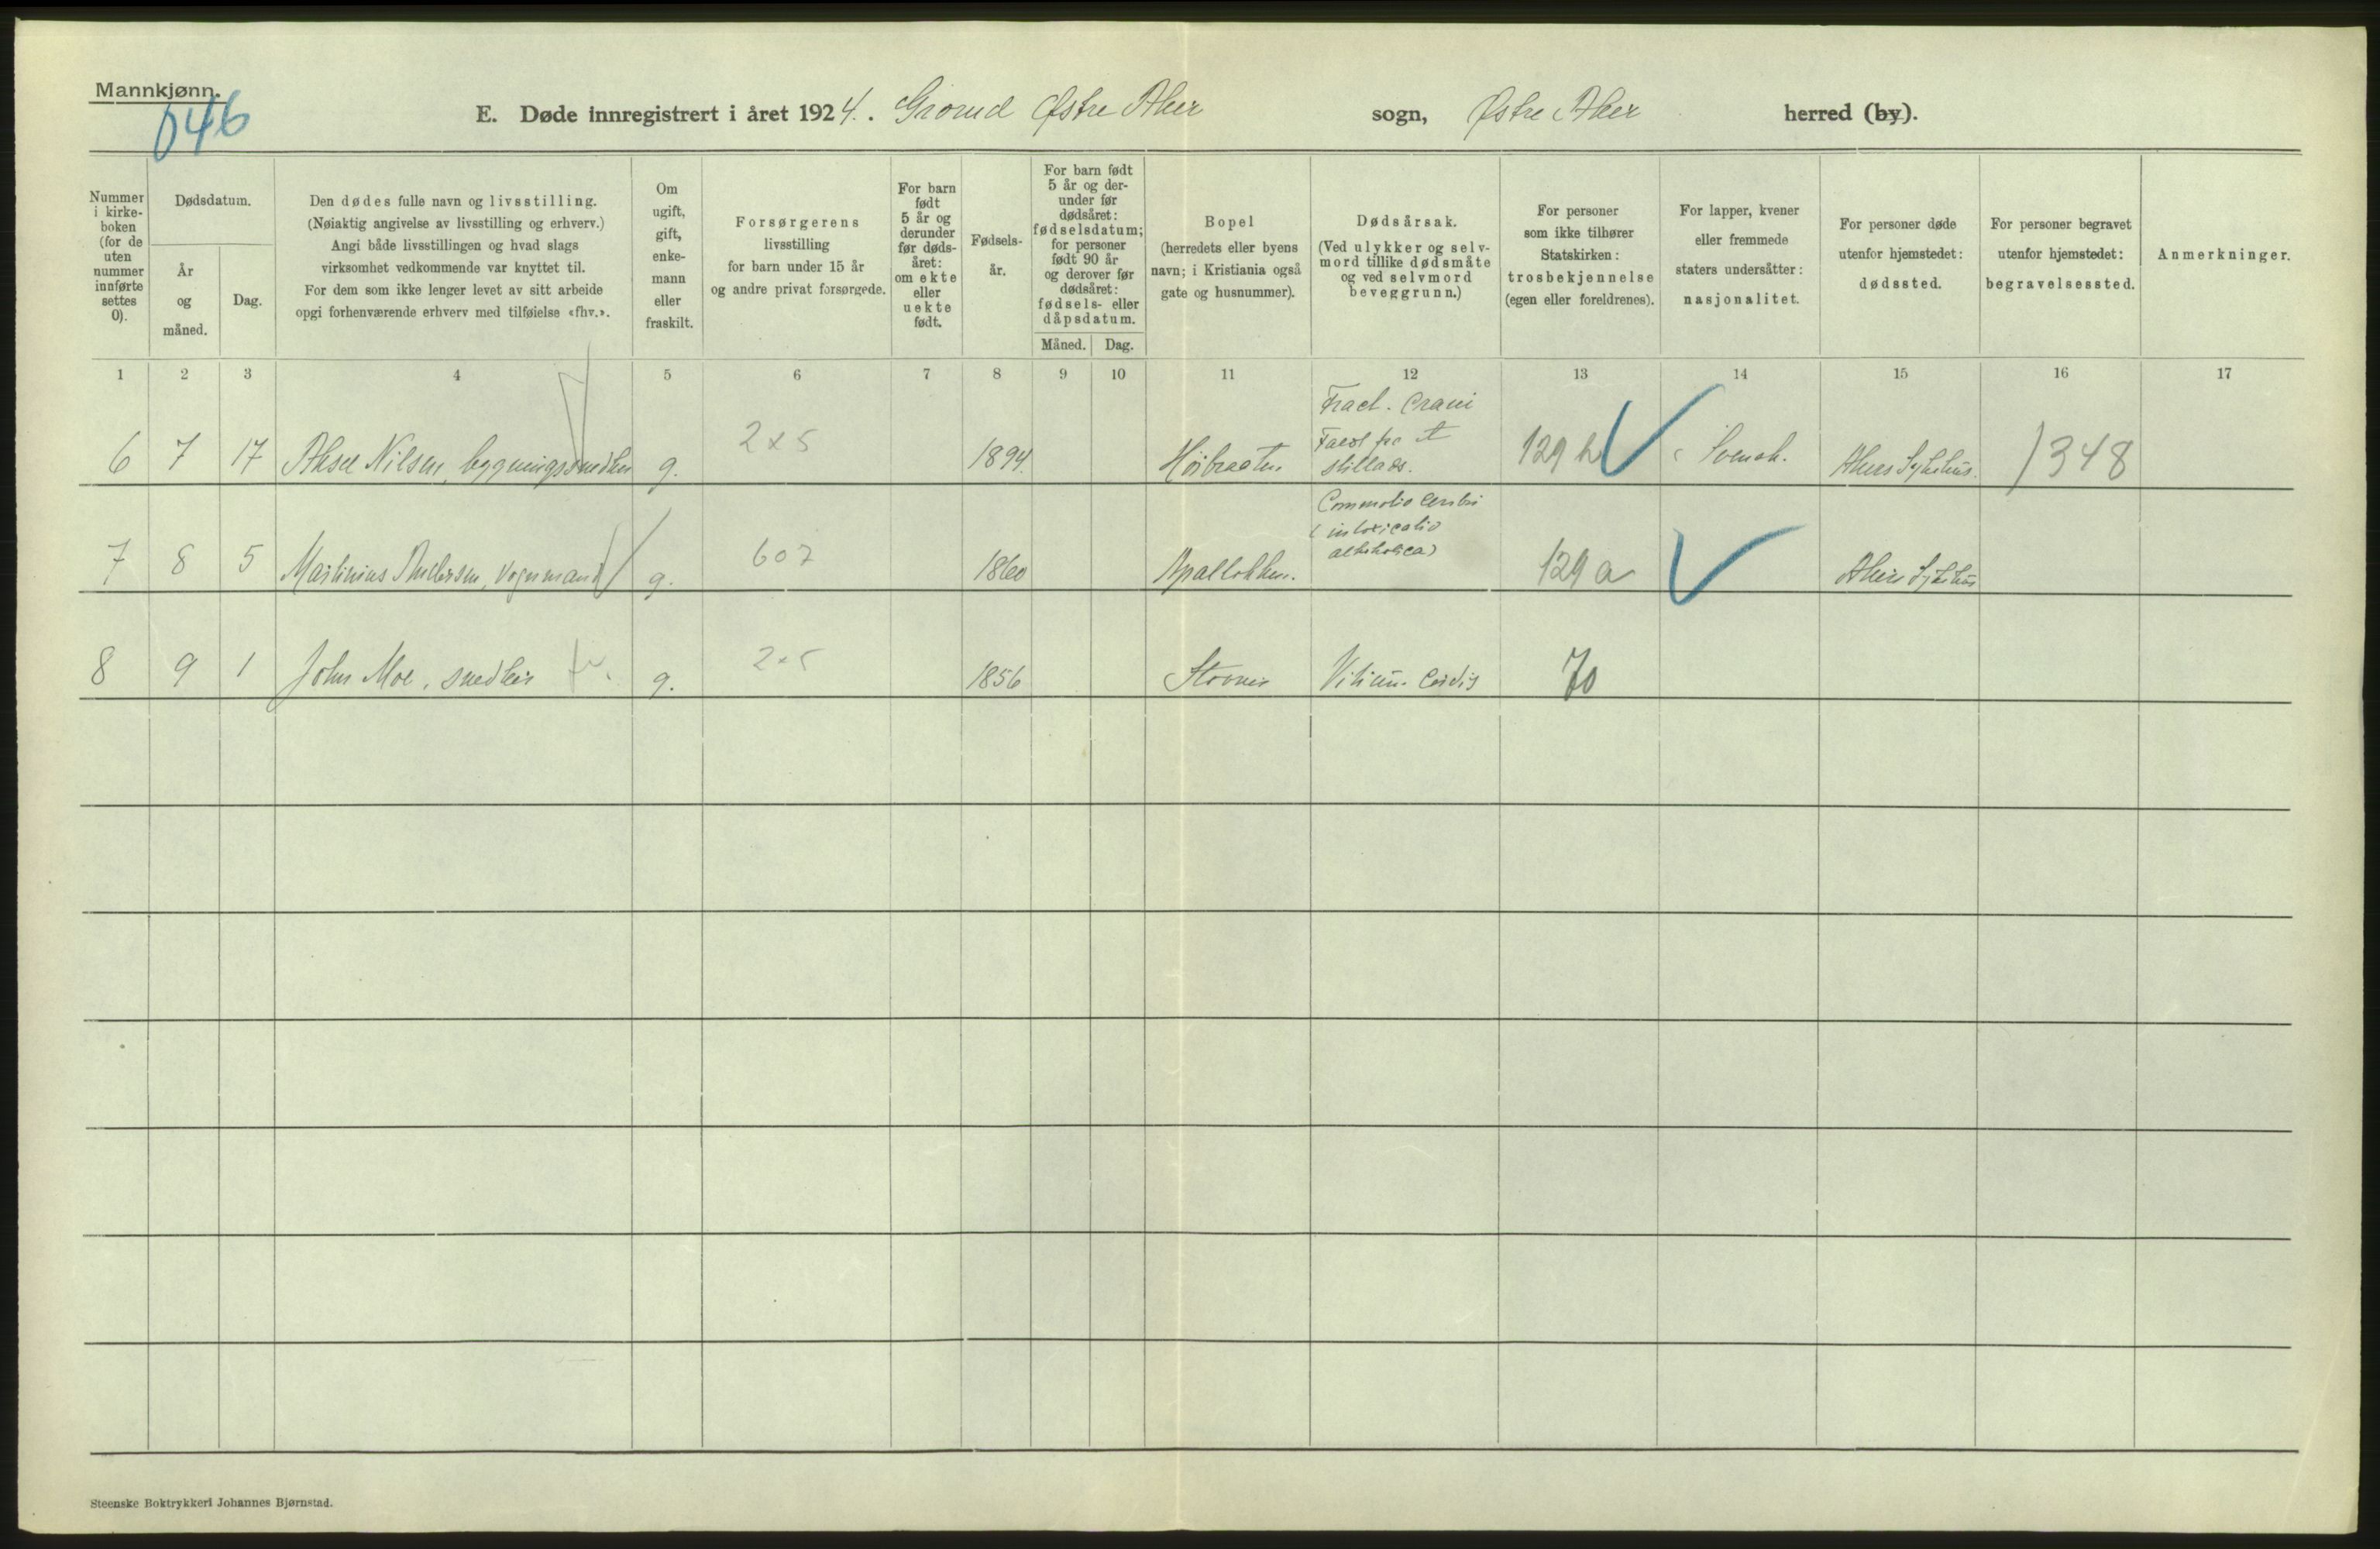 Mannkjønn.
046
E. Døde innregistrert i året 1924. Grorud Østre Aker sogn, Østre Aker herred (by).
Nummer
i kirke-
boken
(for de
uten
nummer
innførte
settes
0).
Dødsdatum.
År
og
måned.
Dag.
Den dødes fulle navn og livsstilling.
(Nøiaktig angivelse av livsstilling og erhverv.)
Angi både livsstillingen og hvad slags
virksomhet vedkommende var knyttet til.
For dem som ikke lenger levet av sitt arbeide
opgi forhenværende erhverv med tilføielse «fhv.».
Om
ugift,
gift,
enke-
mann
eller
fraskilt.
Forsørgerens
livsstilling
for barn under 15 år
og andre privat forsørgede.
For barn
født
5 år og
derunder
før døds-
året:
om ekte
eller
uekte
født.
Fødsels-
år.
For barn født
5 år og der-
under før
dødsåret:
fødselsdatum;
for personer
født 90 år
og derover før
dødsåret:
fødsels- eller
dåpsdatum.
Måned. Dag.
Bopel
(herredets eller byens
navn; i Kristiania også
gate og husnummer).
Dødsårsak.
(Ved ulykker og selv-
mord tillike dødsmåte
og ved selvmord
beveggrunn.)
For personer
som ikke tilhører
Statskirken:
trosbekjennelse
(egen eller foreldrenes).
For lapper, kvener
eller fremmede
staters undersåtter:
nasjonalitet.
For personer døde
utenfor hjemstedet:
dødssted.
For personer begravet
utenfor hjemstedet:
begravelsessted.
Anmerkninger.
1 2 3 4 5 6 7 8 9 10 11 12 13 14 15 16 17
6 7 17 Aksel Nilsen, bygningssnedker g. 2x5 1894. Høibraaten Fract. Cranii
Fald fra et
stillads. 129 h Svensk. Akers Sykehus. 348
7 8 5 Martinius Andersen, vognmand g. 607 1860 Apalløkken. Commotio cerebri
(intoxicatio
alkoholica) 129 a Akers Sykehus
8 9 1 John Moe, snedker g. 2x5 1856 Stovner Vitium Cordis 70
Steenske Boktrykkeri Johannes Bjørnstad.